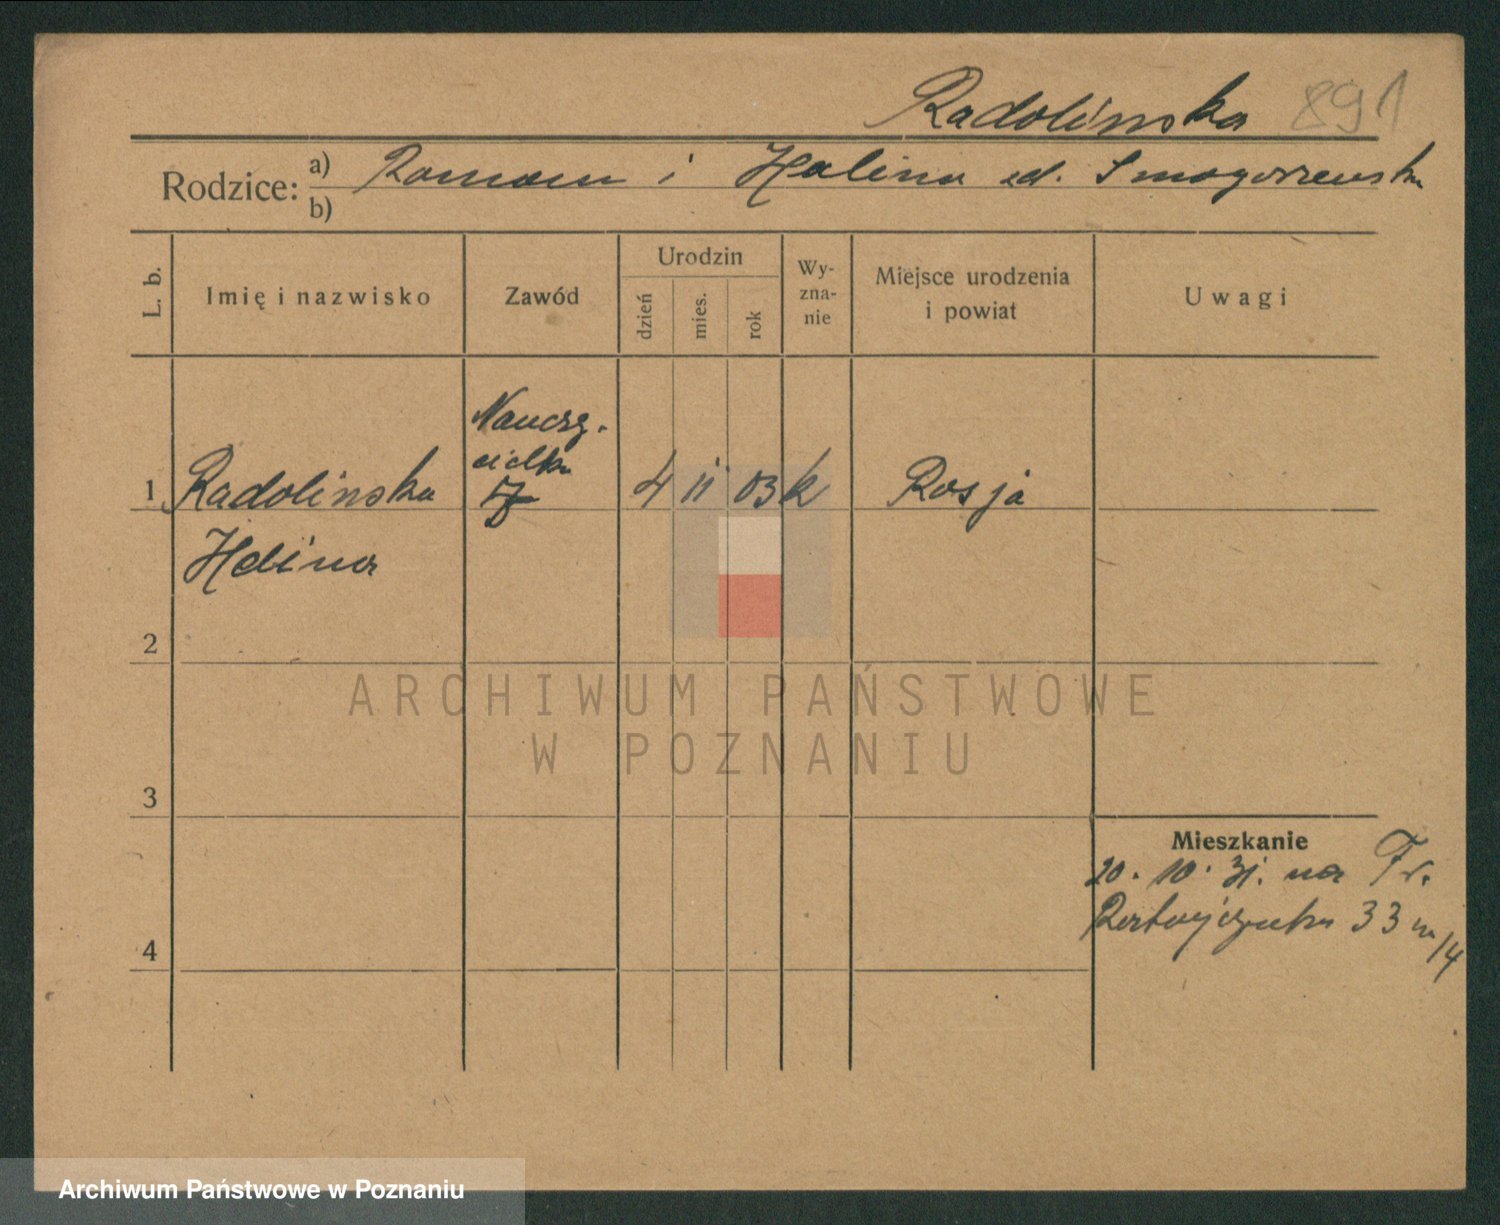 Radolińska 891
Rodzice: a) Roman i Halina zd. Smogorzewska
b)
L. b.
Imię i nazwisko
Zawód
Urodzin
dzień
mies.
rok
Wy-
zna-
nie
Miejsce urodzenia
i powiat
Uwagi
Nauczy-
cielka
1 Radolińska 4 11 03 k Rosja
Helina
2
ARCHIWUM PAŃSTWOWE
W POZNANIU
3
Mieszkanie
20. 10. 31. na Fr.
Ratajczaka 33 m/4
4
Archiwum Państwowe w Poznaniu